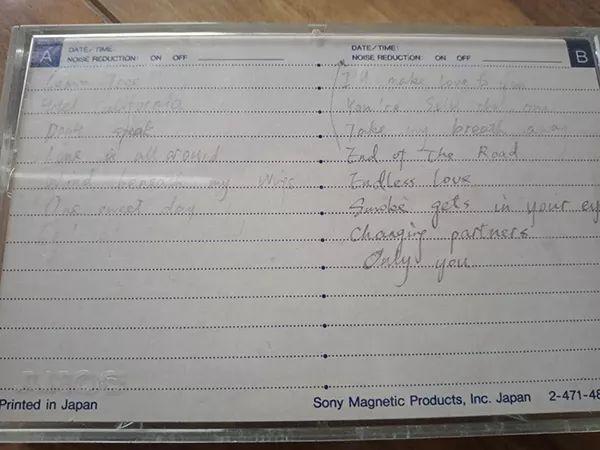 A
DATE/TIME:
NOISE REDUCTION: ON OFF
Lemon Tree
Hotel
Don't speak
Love is all around
Wind beneath my Wigs
One sweet day
DATE/TIME:
NOISE REDUCTION: ON OFF
B
I'll make love to you
You're still the one
Take my breath away
End of the Road
Endless love
Smoke gets in your ey
Changing partners
Only you
SONY
Printed in Japan
Sony Magnetic Products, Inc. Japan 2-471-48